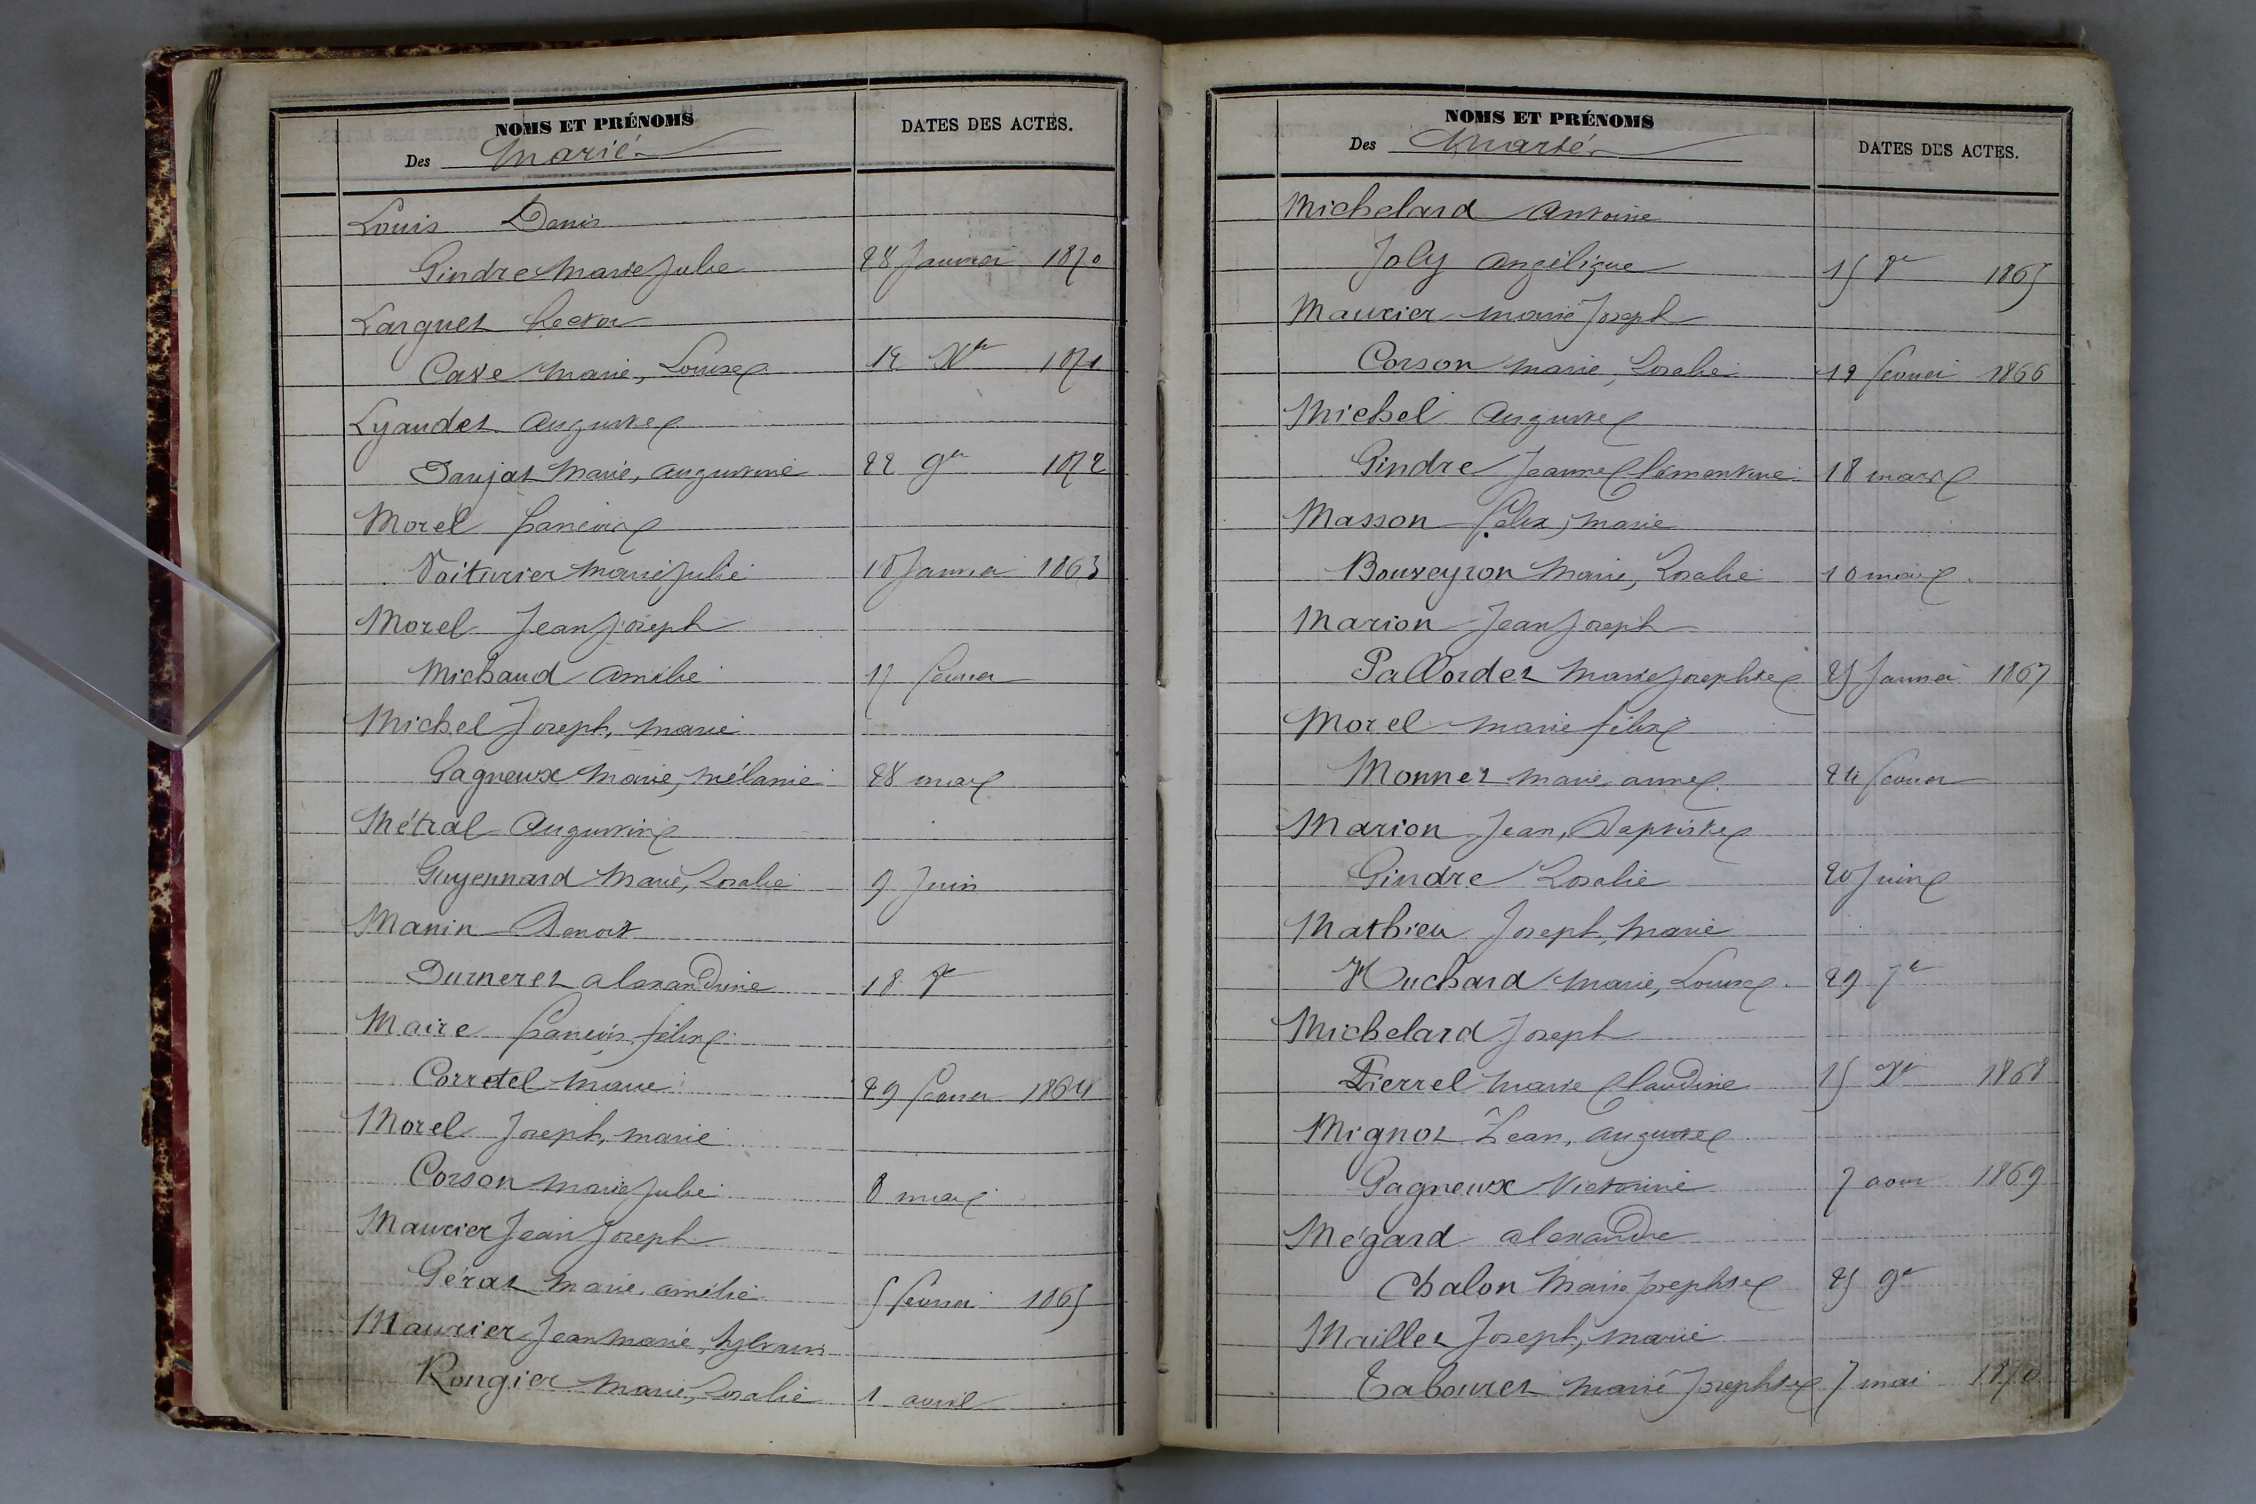 NOMS ET PRÉNOMS
Des Mariés
DATES DES ACTES.
Louis Denis
Gindre Marie Julie 28 Janvier 1870
Larguet hector
Cave Marie, Louise 12 Xbre 1871
Lyaudet auguste
Daujat Marie, augustine 22 9bre 1872
Morel francois
Voiturier Marie Julie 18 Janvier 1863
Morel Jean Joseph
Michaud amélie 17 fevrier
Michel Joseph, marie
Gagneux Marie, mélanie 28 mars
Métral Augustin
Guyennard Marie, Rosalie 9 Juin
Manin Benoit
Durneret alexandrine 18
Maire francois félix
Corretel Marie 29 fevrier 1864
Morel Joseph, marie
Corson Marie Julie 8 mars
Maurier Jean Joseph
Gérat Marie amélie 5 fevrier 1865
Maurier Jean Marie, Sylvain
Rongier Marie, Rosalie 1 avril
NOMS ET PRÉNOMS
Des Mariés
DATES DES ACTES.
Michelard Antoine
Joly Angélique 15 1865
Maurier Marie Joseph
Corson Marie, Rosalie 19 fevrier 1866
Michel Auguste
Gindre Jeanne Clémentine 18 mars
Masson Félix, marie
Bouveyron Marie, Rosalie 10 mai
Marion Jean Joseph
Pallordet Marie Josephte 25 Janvier 1867
Morel Marie félix
Monnet Marie anne 24 fevrier
Marion Jean, Baptiste
Gindre Rosalie 20 Juin
Mathieu Joseph, Marie
Huchard Marie, Louise 29 7bre
Michelard Joseph
Pierrel Marie Claudine 15 1868
Mignot Jean, auguste
Gagneux Victorine 7 aout 1869
Mégard alexandre
Chalon Marie Josephte 25 9bre
Maillet Joseph, Marie
Tabouret Marie Josephte 7 mai 1870